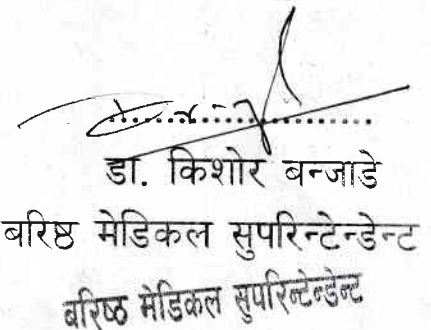 डा. किशोर बन्जाडे
बरिष्ठ मेडिकल सुपरिन्टेन्डेन्ट
बरिष्ठ मेडिकल सुपरिन्टेन्डेन्ट